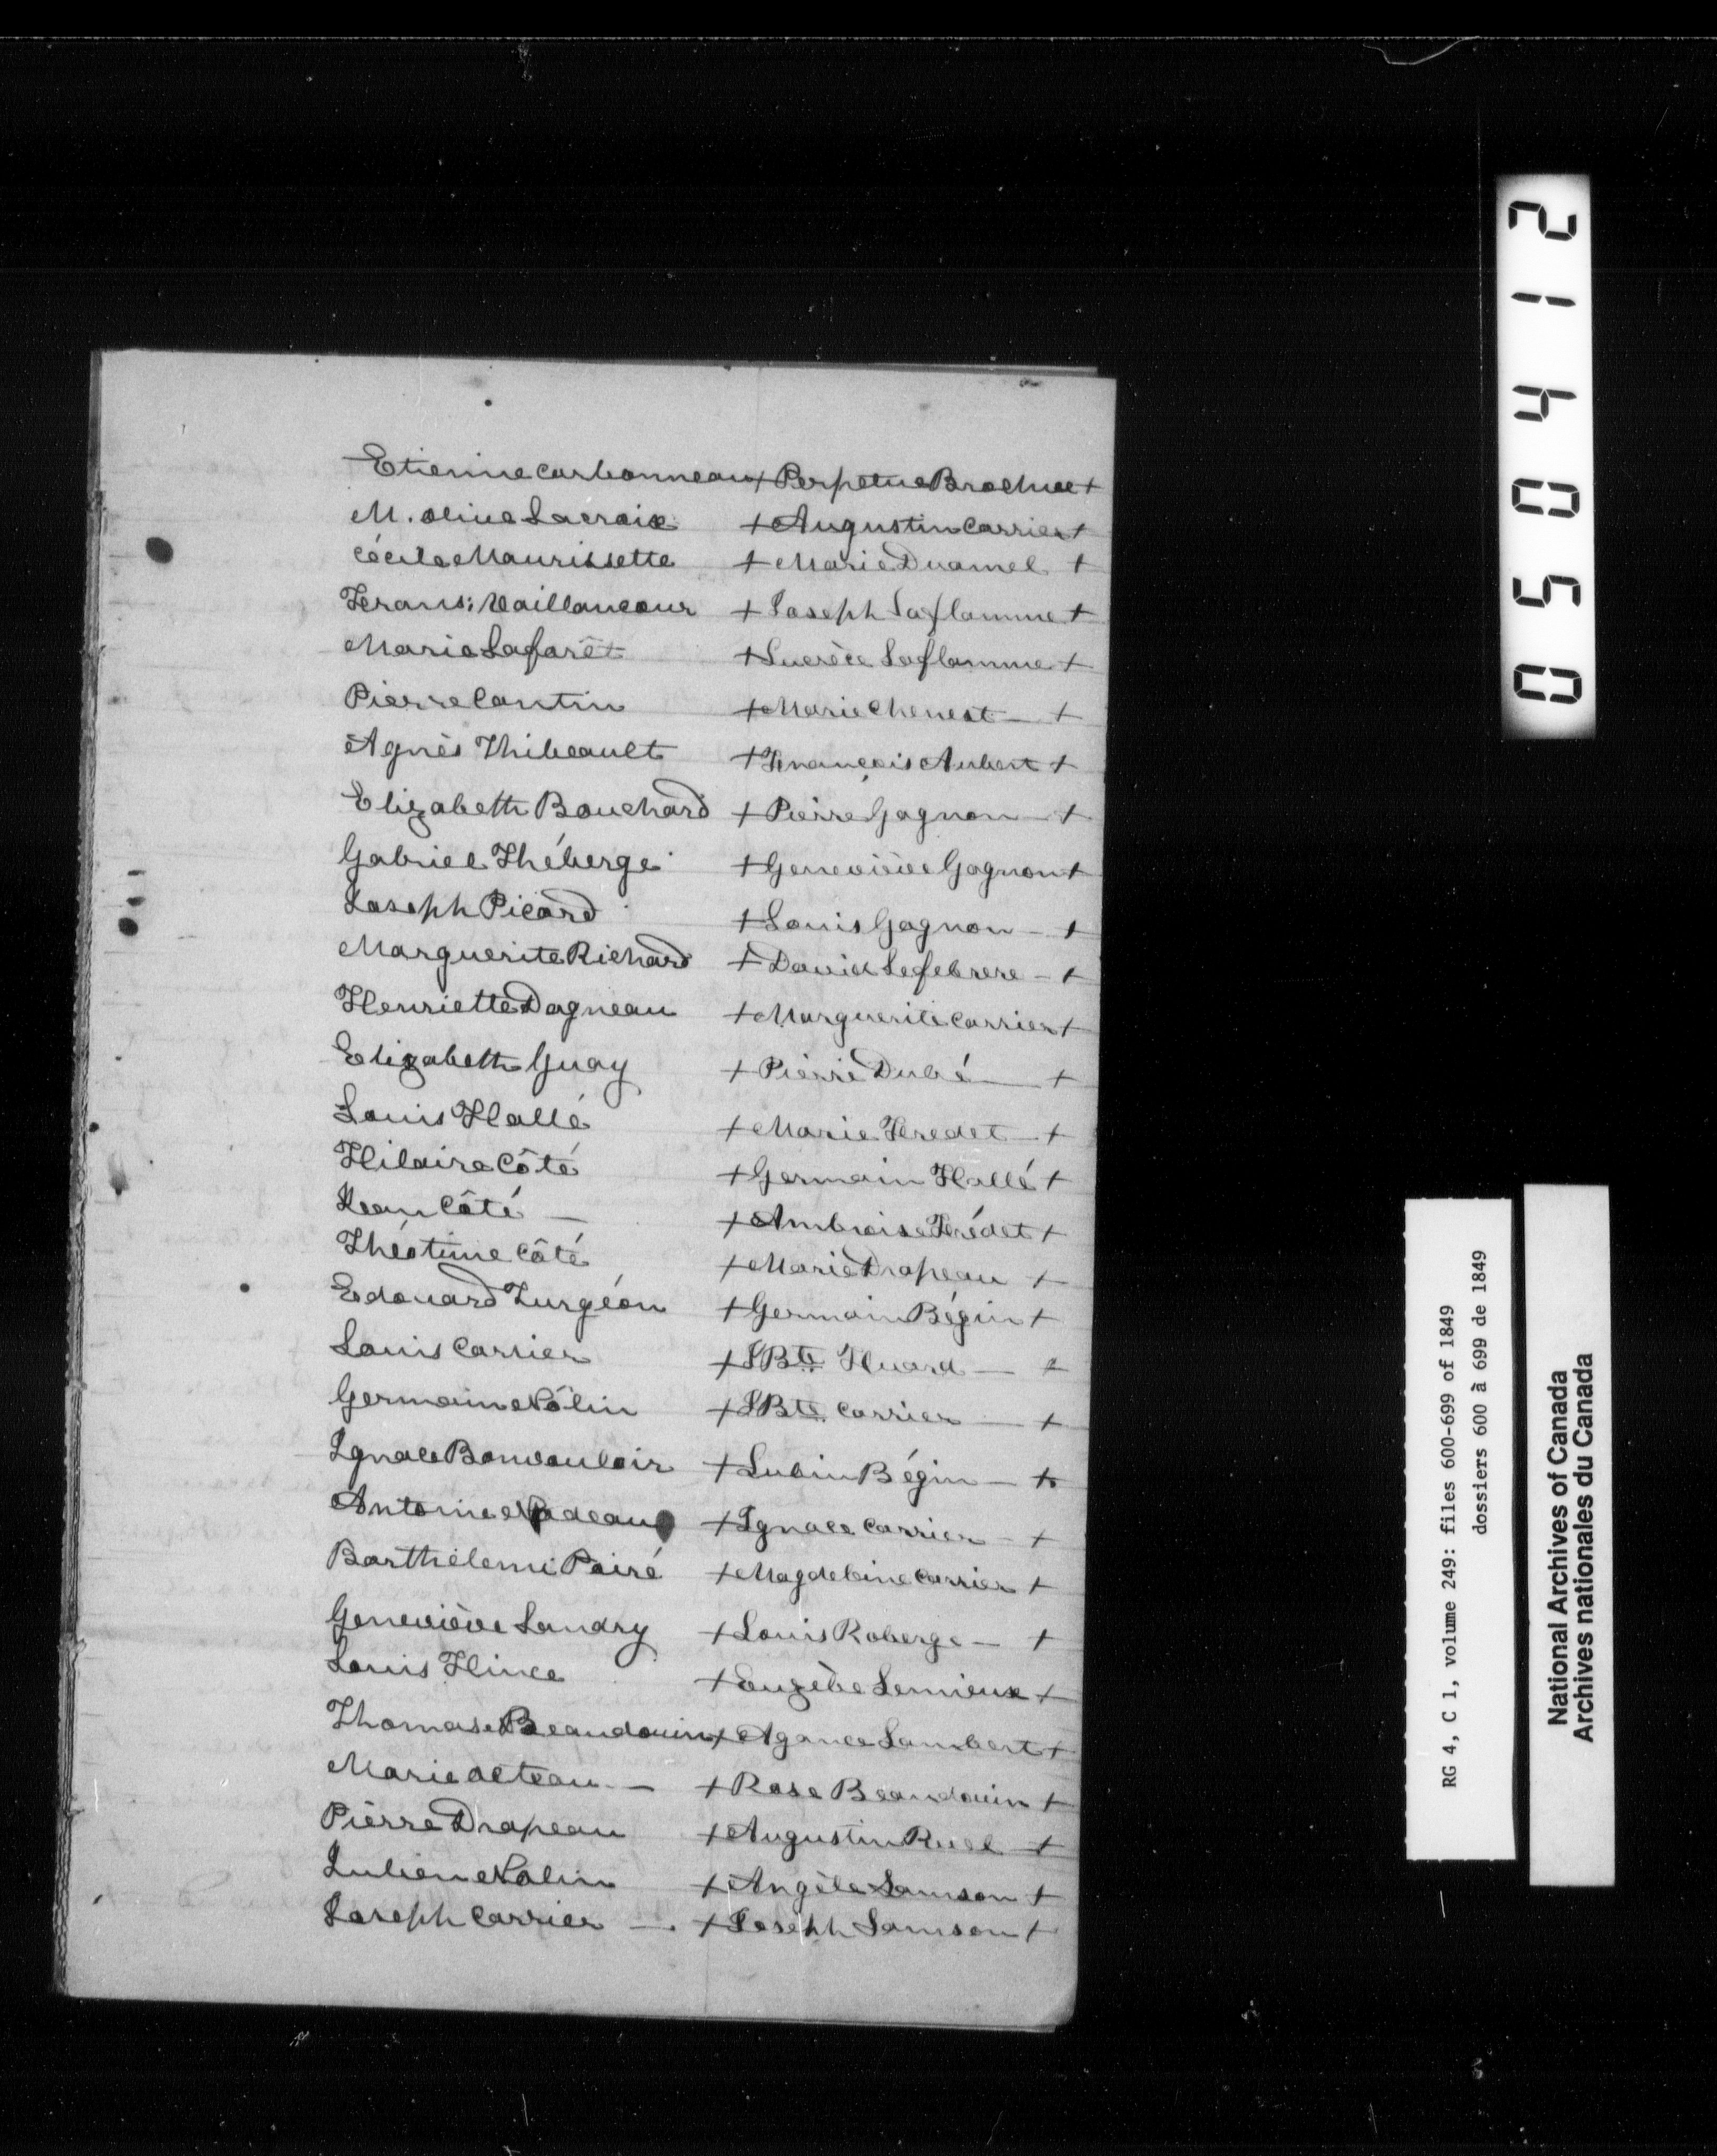 Etienne Carbonneau + Perpetue Brochue +
M. Olive Lacroix + Augustin Carrier +
Cécile Maurissette + Marie Duamel +
Frans: Vaillancour + Joseph Laflamme +
Marie Laforêt + Lucrèce Laflamme +
Pierre Cantin + Marie Chenest — +
Agnès Thibeault + François Aubert +
Elizabeth Bouchard + Pierre Gagnon — +
Gabriel Théberge + Geneviève Gagnon +
Joseph Picard + Louis Gagnon — +
Marguerite Richard + David Lefebvre — +
Henriette Dagneau + Marguerite Carrier +
Elizabeth Guay + Pierre Dubé — +
Louis Hallé + Marie Feredet — +
Hilaire Côté + Germain Hallé +
Jean Côté — + Ambroise Frédet +
Théotime Côté + Marie Drapeau +
Edouard Turgéon + Germain Bégin +
Louis Carrier + J Bte Huard — +
Germain Nolin + J Bte Carrier — +
Ignace Bonvouloir + Lubin Bégin — +
Antoine Nadeau + Ignace Carrier — +
Barthélemi Poiré + Magdeleine Carrier +
Geneviève Landry + Louis Roberge — +
Louis Hince + Eugèbe Lemieux +
Thomas Beaudouin + Agance Lambert +
Marie Octeau — + Rose Beaudouin +
Pierre Drapeau + Augustin Ruel +
Julien Nolin + Angèle Samson +
Joseph Carrier — + Joseph Samson +
050412
RG 4, C 1, volume 249: files 600-699 of 1849
dossiers 600 à 699 de 1849
National Archives of Canada
Archives nationales du Canada